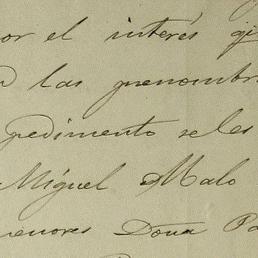 por el interés q
n las prenombra
pedimento seles
Miguel Malo
menores Doña Pa